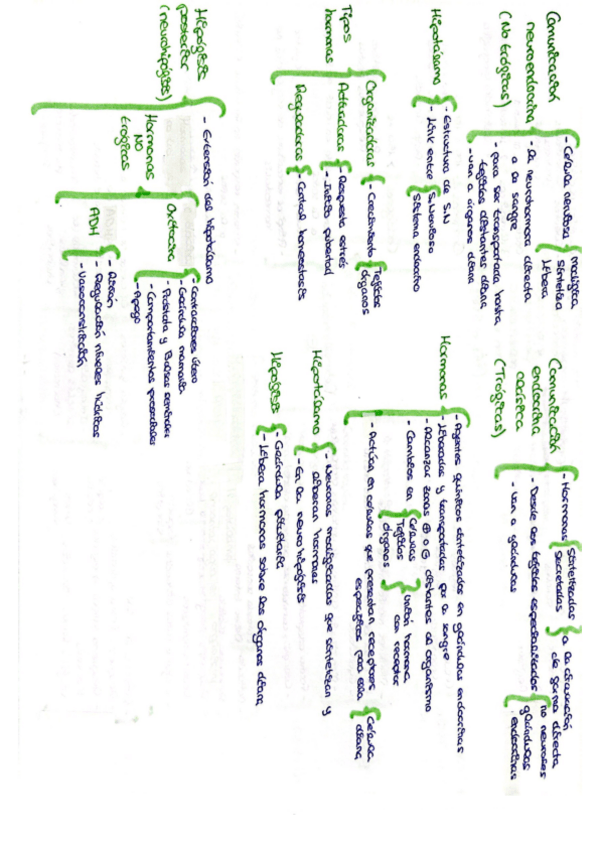 Comunicación
neuroendocrina
(No tróficas)
- Célula nerviosa
modifica
Sintetiza
libera
- La neurohormona directa
a la sangre
- para ser transportada hasta
tejidos distantes diana
- van a órganos diana
Hipotálamo
- Estructura de S.N
- Link entre
S. Nervioso
Sistema endocrino
Tipos
hormonas
Organizadoras
- Crecimiento
Tejidos
órganos
Activadoras
- Respuesta estrés
- Inicio pubertad
Reguladoras
- Control homeostasis
Hipófisis
posterior
(neurohipófisis)
- Extensión del hipotálamo
Hormonas
NO
tróficas
Oxitocina
- Contracciones útero
- Glándula mamaria
- Próstata y Bolsas seminales
- Comportamientos prosociales
- Apego
ADH
- Acción
- Regulación niveles hídricos
- Vasoconstricción
Comunicación
endocrina
clásica
(Tróficas)
- Hormonas
Sintetizadas
Secretadas
a la circulación
de forma directa
- Desde los tejidos especializados
no neurales
glándulas
endocrinas
- van a glándulas
Hormonas
- Agentes químicos sintetizados en glándulas endocrinas
- Liberadas y transportadas por la sangre
- Alcanzar zonas ⊕ o ⊖ distantes del organismo
- Cambios en
Células
Tejidos
órganos
unión hormona
con receptor
- Actúa en células que presentan receptores
específicos para ella
Célula
diana
Hipotálamo
- Neuronas modificadas que sintetizan y
liberan hormonas
- En la neurohipófisis
Hipófisis
- Glándula pituitaria
- Libera hormonas sobre los órganos diana